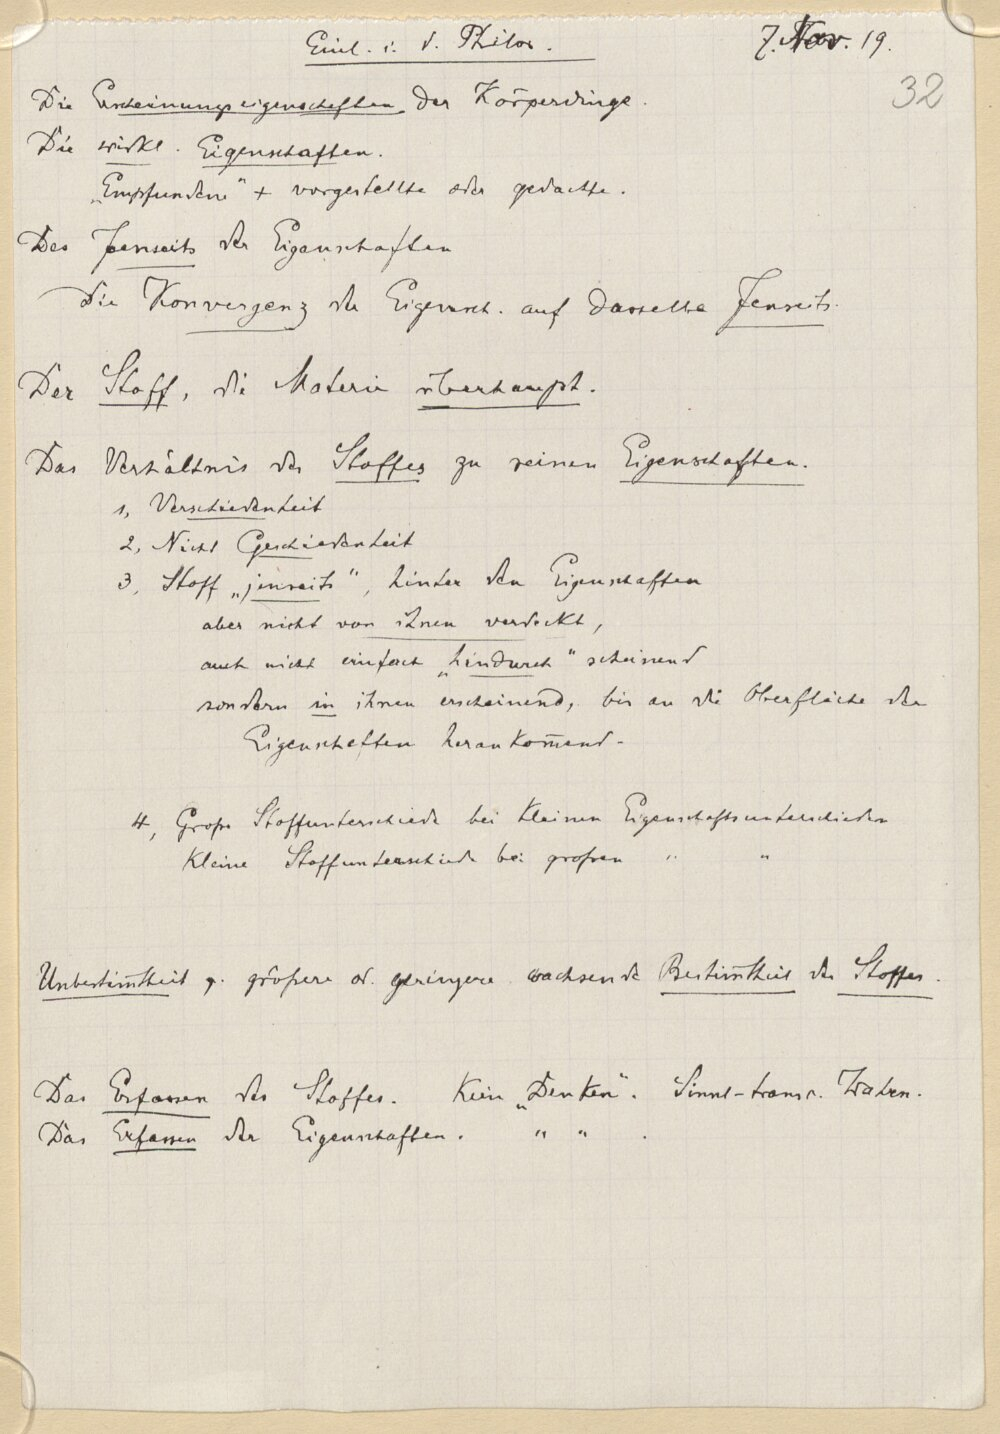 Einl. i. d. Philos. 7. Nov. 19.
32
Die Erscheinungseigenschaften der Körperdinge.
Die wirkl. Eigenschaften.
„Empfundene“ + vorgestellte oder gedachte.
Das Jenseits der Eigenschaften
Die Konvergenz der Eigensch. auf dasselbe Jenseits.
Der Stoff, die Materie überhaupt.
Das Verhältnis des Stoffes zu seinen Eigenschaften.
1, Verschiedenheit
2, Nicht Geschiedenheit
3, Stoff „jenseits“, hinter den Eigenschaften
aber nicht von ihnen verdeckt,
auch nicht einfach „hindurch“ scheinend
sondern in ihnen erscheinend, bis an die Oberfläche der
Eigenschaften herankom̅end.
4, Große Stoffunterschiede bei kleinen Eigenschaftsunterschieden
Kleine Stoffunterschiede bei großen " "
Unbestim̅theit größere od. geringere wachsende Bestim̅theit des Stoffes.
Das Erfassen des Stoffes. Kein „Denken“. Sinnl-transc. Wahrn.
Das Erfassen der Eigenschaften. " " .